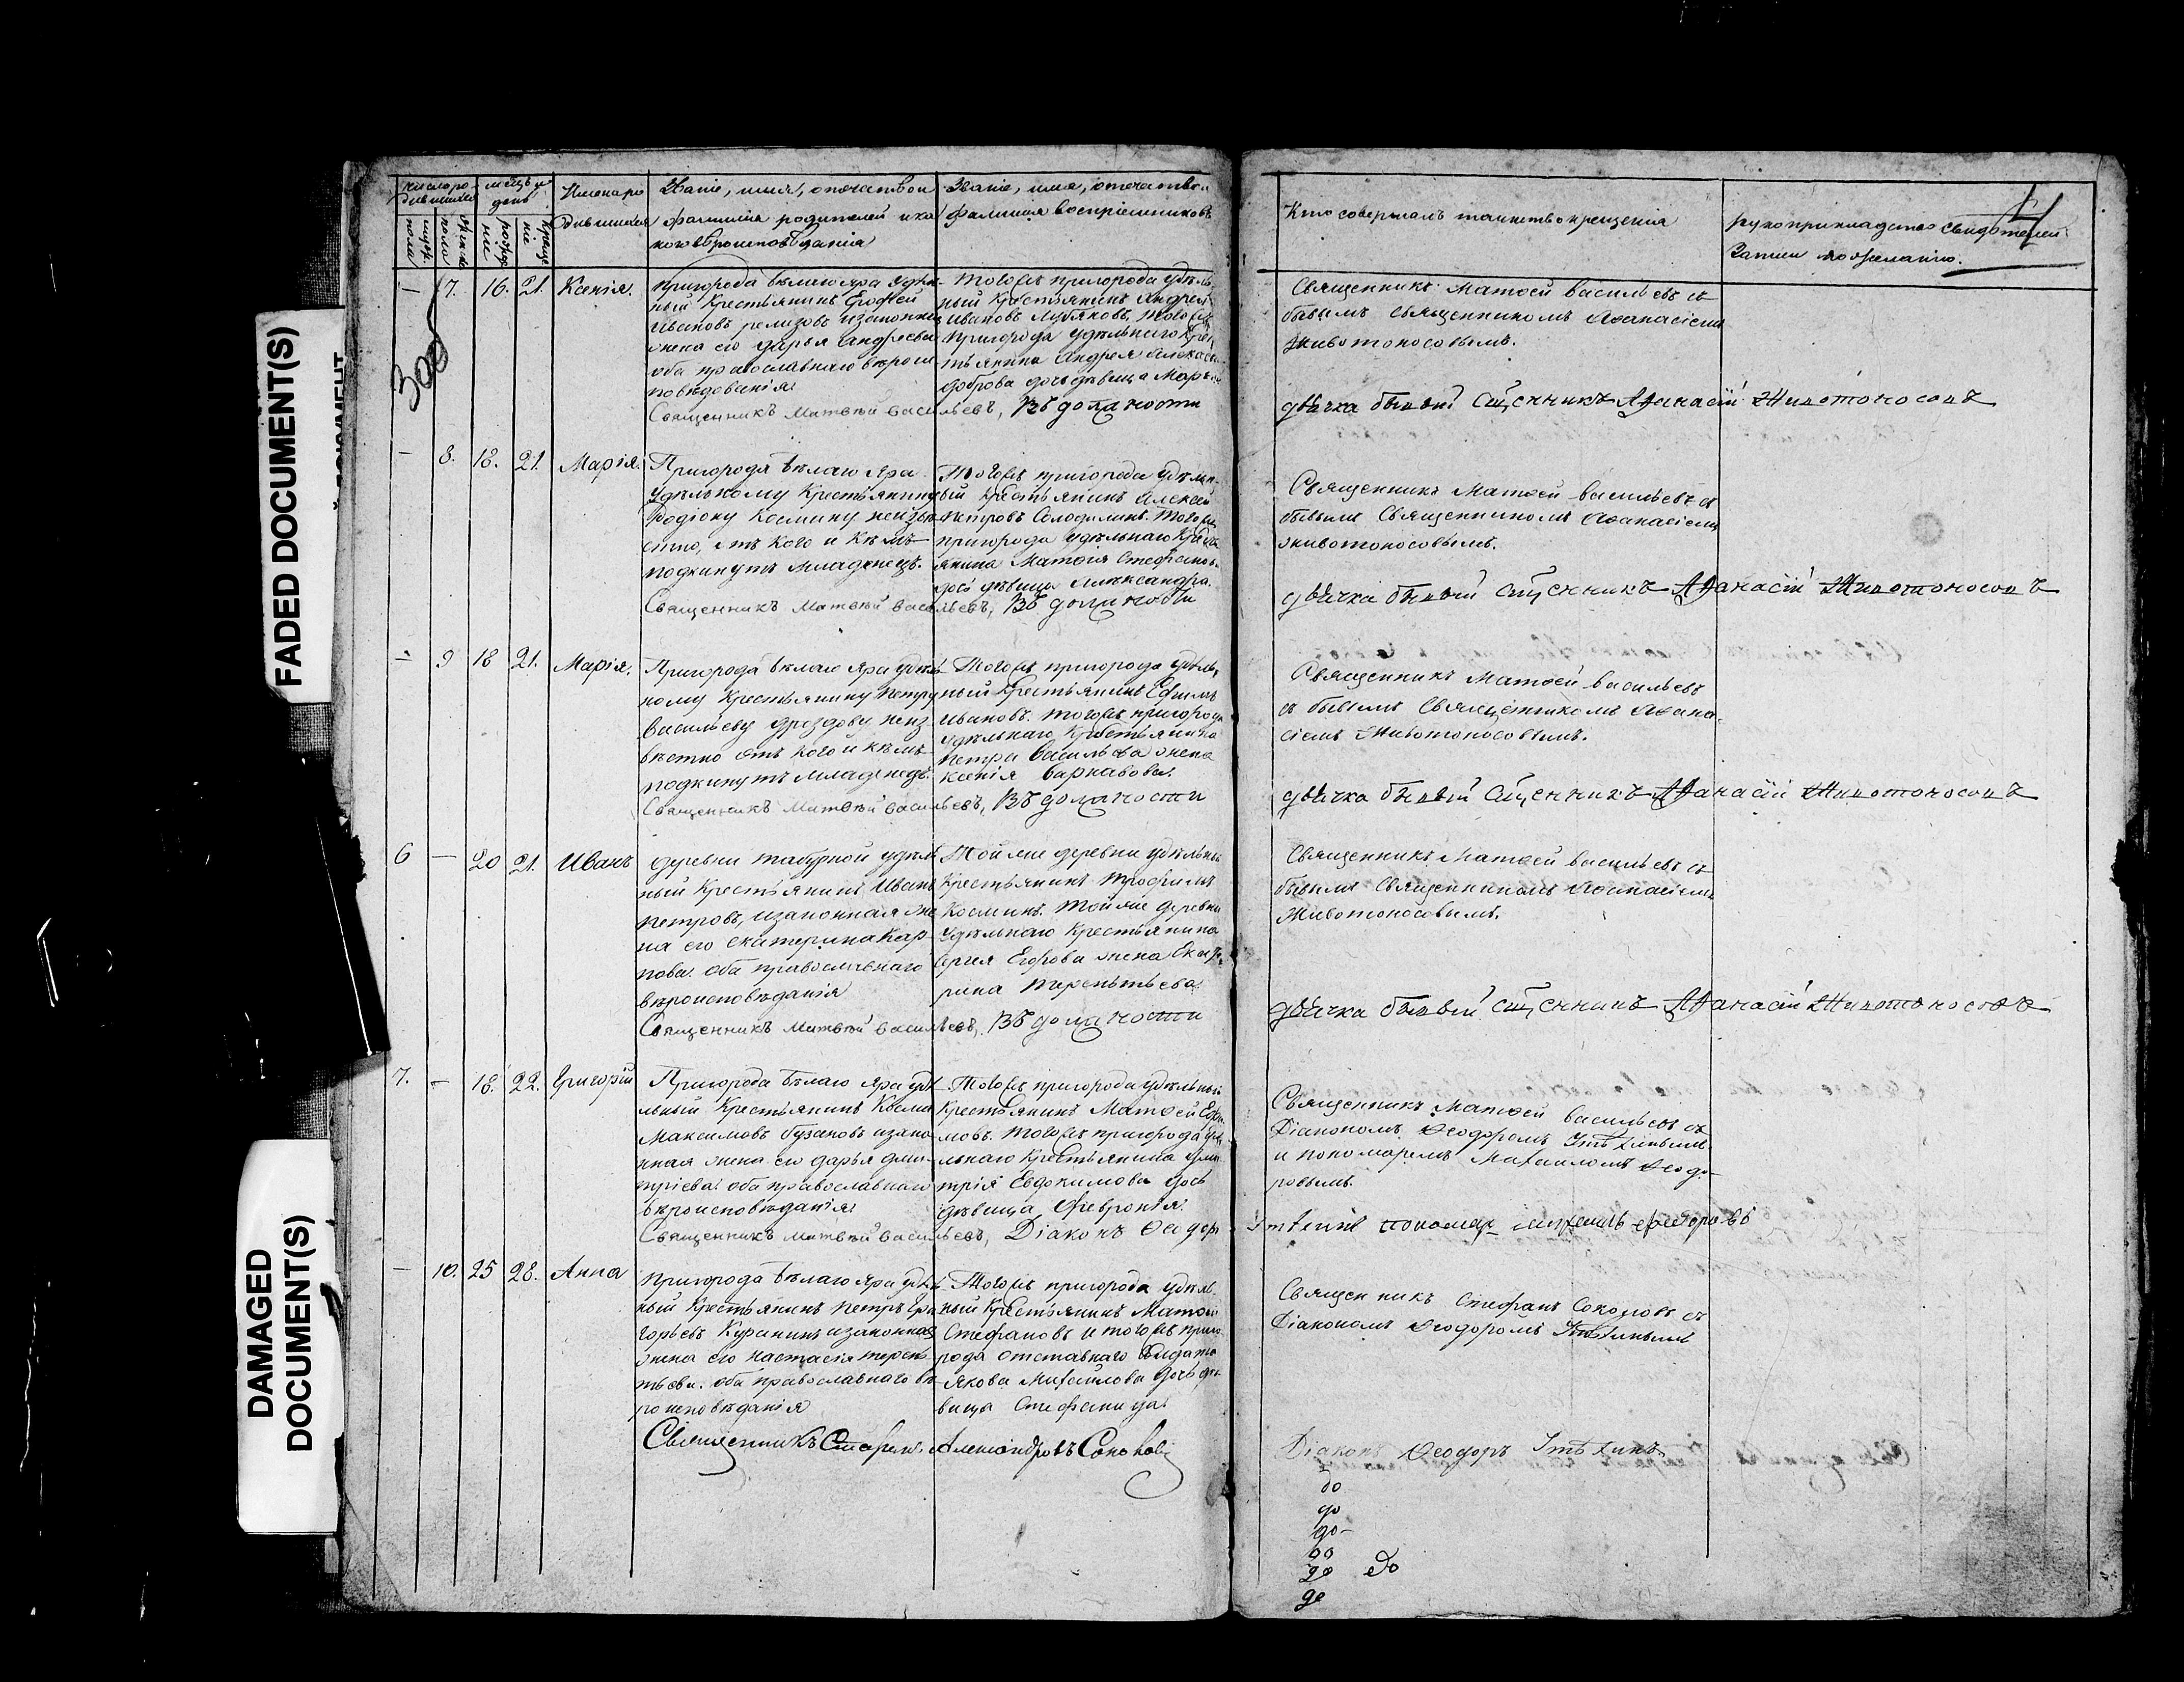 FADED DOCUMENT(S)
DAMAGED
DOCUMENT(S)
4
число ро-
дившихся
мужеск. пола
женска. пола
мѣсяцъ и
день
рожде
нiе
креще
нiе
Имена ро
дившихся
Званiе, имя, отечество и
фамилiя родителей и ка
кого вѣроисповѣданiя
Званiе, имя, отечество и
фамилiя воспрiемниковъ
Кто совершалъ таинство крещенiя
рукоприкладство свидѣтелей
записи по желанiю.
— 7. 16. 21. Ксенiя.
Пригорода Бѣлаго Яра удѣль
ный Крестьянинъ Ерофей
Ивановъ и законная
жена его Дарья Андреева
оба православнаго вѣроис
повѣдованiя
Священникъ Матвѣй Васильевъ, въ должности
Тогожъ пригорода удѣль
ный Крестьянинъ Андрей
Ивановъ, тогожъ
пригорода удѣльнаго Крес
тьянина Андрея
дочь дѣвица
Священникъ Матѳей Васильевъ съ
бывшимъ священникомъ Аѳанасiемъ
Животоносовымъ.
дьячка бывый Сщенникъ Аѳанасiй Животоносовъ
— 8. 18. 21. Марiя.
Пригорода Бѣлаго Яра
Удѣльному Крестьянину
Родiону Космину неизвѣ
стно, отъ кого и кѣмъ
подкинутъ младенецъ.
Священникъ Матвѣй Васильевъ, въ должности
Тогожъ пригорода удѣльн
ый Крестьянинъ Алексей
Петровъ Солодилинъ. Тогожъ
пригорода удѣльнаго Крес
янина Матѳiя Стефанов
дочь дѣвица Александра.
Священникъ Матѳей Васильевъ съ
бывшимъ Священникомъ Аѳанасiемъ
Животоносовымъ.
дьячка бывый Сщенникъ Аѳанасiй Животоносовъ
— 9 18 21. Марiя.
Пригорода Бѣлаго Яра удѣль
ному Крестьянину Петру
Васильеву Дроздову неиз
вѣстно отъ кого и кѣмъ
подкинутъ младенецъ.
Священникъ Матвѣй Васильевъ, въ должности
Тогожъ пригорода удѣль
ный Крестьянинъ Ефимъ
Ивановъ. тогожъ пригорода
удѣльнаго Крестьянина
Петра Васильева жена
Ксенiя Варнавова.
Священникъ Матѳей Васильевъ
съ бывшимъ Священникомъ Аѳана
сiемъ Животоносовымъ.
дьячка бывый Сщенникъ Аѳанасiй Животоносовъ
6 — 20 21. Иванъ
деревни Табурной удѣль
ный Крестьянинъ Иванъ
Петровъ, и законная же
на его Екатерина Кар
пова. оба православнаго
вѣроисповѣданiя
Священникъ Матвѣй Васильевъ, въ должности
Той же деревни удѣльный
Крестьянинъ Трофимъ
Косминъ. той же деревни
Удѣльнаго Крестьянина
Сергея Егорова жена Екате
рина Терентьева.
Священникъ Матѳей Васильевъ съ
бывшимъ Священникомъ Аѳанасiемъ
Животоносовымъ.
дьячка бывый Сщенникъ Аѳанасiй Животоносовъ
7. — 18. 22. Григорiй
Пригорода Бѣлаго Яра удѣ
льный Крестьянинъ Косма
Максимовъ Бузановъ и зако
нная жена его Дарья Дми
трiева. оба православнаго
вѣроисповѣданiя.
Священникъ Матвѣй Васильевъ, Дiаконъ Ѳеодоръ
Тогожъ пригорода удѣльный
Крестьянинъ Матѳей Ефи
мовъ. тогожъ пригорода удѣ
льнаго Крестьянина Дми
трiя Евдокимова дочь
дѣвица Феврония.
Священникъ Матѳей Васильевъ съ
Дiакономъ Ѳеодоромъ
и пономаремъ Михаиломъ Ѳеодо
ровымъ.
пономарь Михаилъ Федоровъ
— 10. 25 28. Анна
Пригорода Бѣлаго Яра удѣль
ный Крестьянинъ Петръ Гри
горьевъ Куранинъ и законная
жена его Настасiя Терен
тьева. оба православнаго вѣ
роисповѣданiя
Священникъ Стефанъ Александровъ Соколовъ
Тогожъ пригорода удѣль
ный Крестьянинъ Матѳей
Стефановъ и тогожъ приго
рода отставнаго Солдата
Якова Михайлова дочь дѣ
вица Стефанида.
Священникъ Стефанъ Соколовъ съ
Дiакономъ Ѳеодоромъ
Дiаконъ Ѳеодоръ
до
до
до
до
до до
до